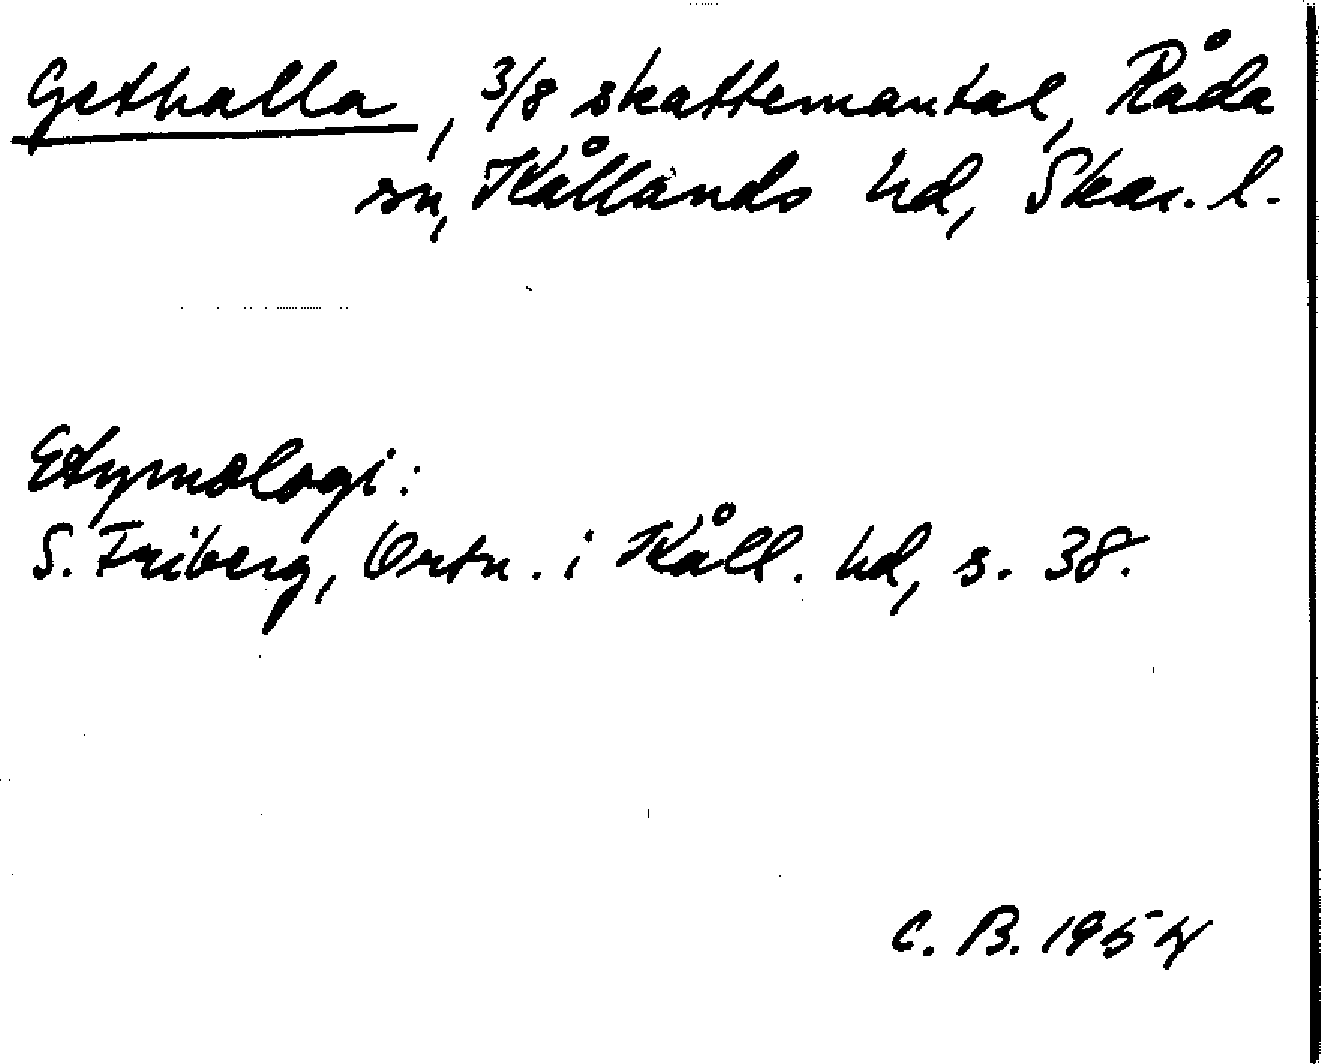 Gethalla, 3/8 skattemantal, Råda
sn, Kållands hd, Skar. l.
Etymologi:
S. Friberg, Ortn. i Kåll. hd, s. 38.
C. B. 1954